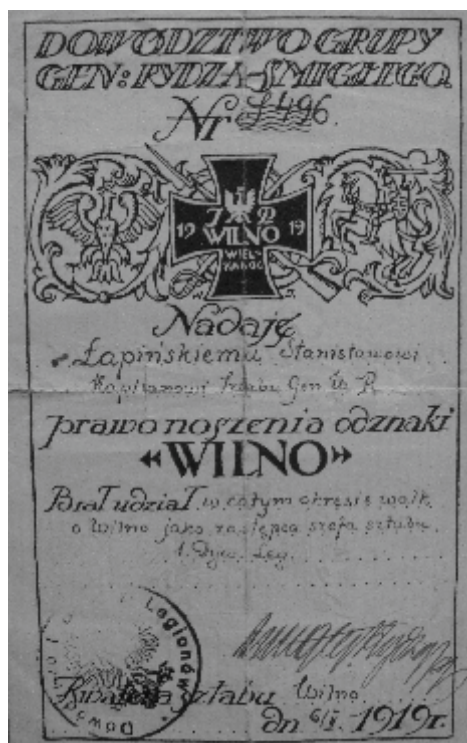 DOWÓDZTWO GRUPY
GEN: RYDZA-ŚMIGŁEGO
Nr 496.
19 WILNO 19
WIEL-
KANOC
Nadaję
Łapińskiemu Stanisławowi
Kapitanowi Sztabu Gen W. P.
prawo noszenia odznaki
«WILNO»
Brał udział w całym okresie walk
o Wilno jako zastępca szefa sztabu
1. Dyw. Leg.
Legionów
Dowó
Kwatera Sztabu Wilno
dn 6/I. 1919r.